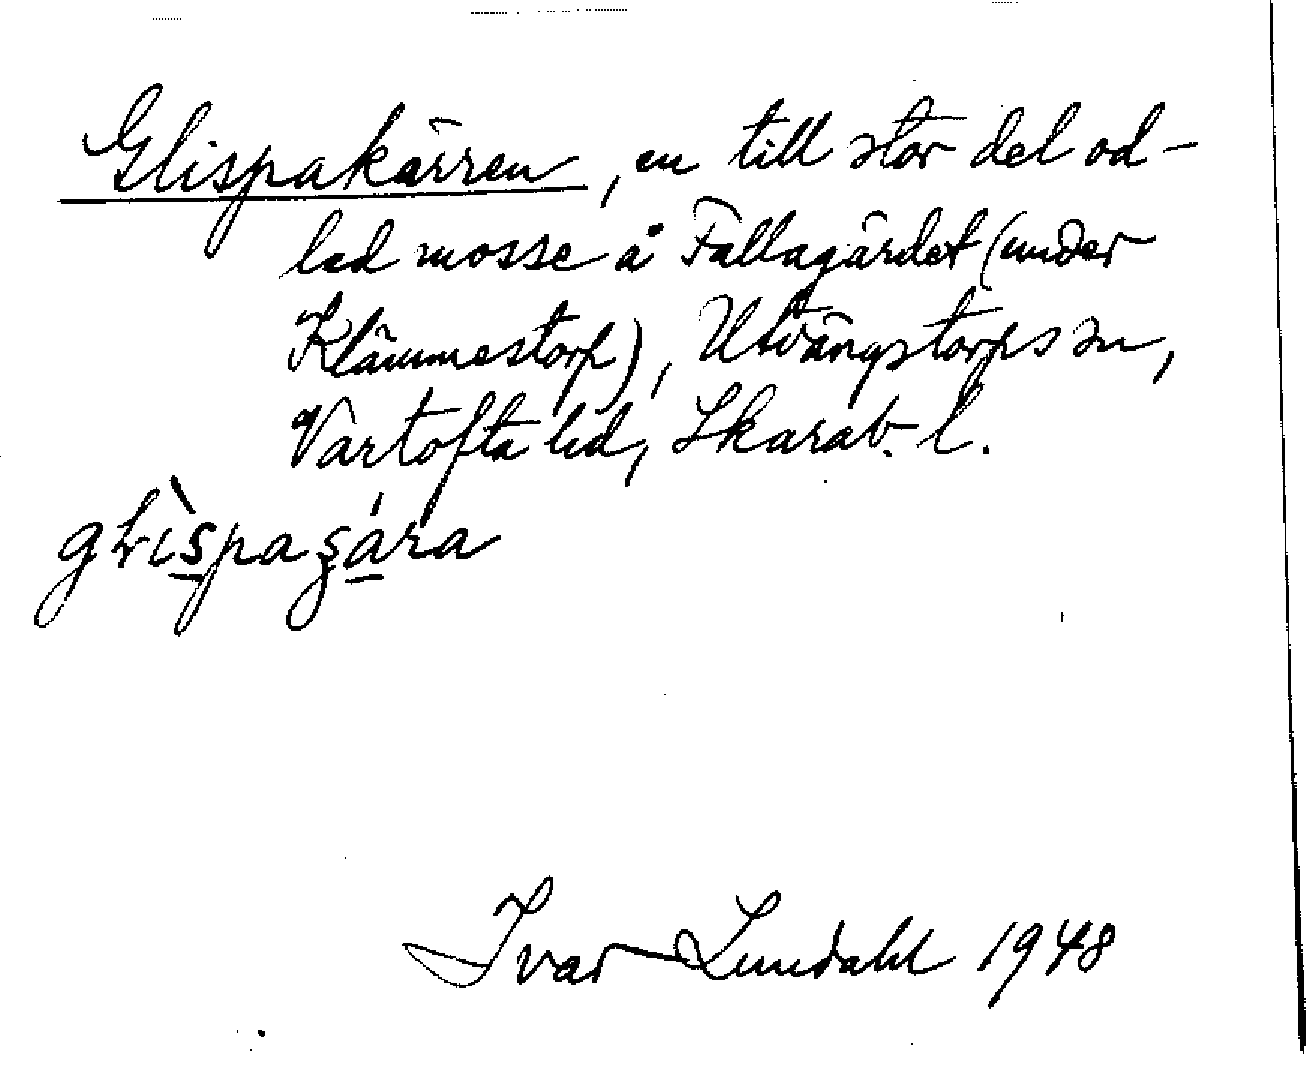 Glispakärren, en till stor del od-
lad mosse å Fallagärdet (under
Klämmestorp), Utvängstorps sn,
Vartofta hd, Skarab. l.
Ivar Lundahl 1948